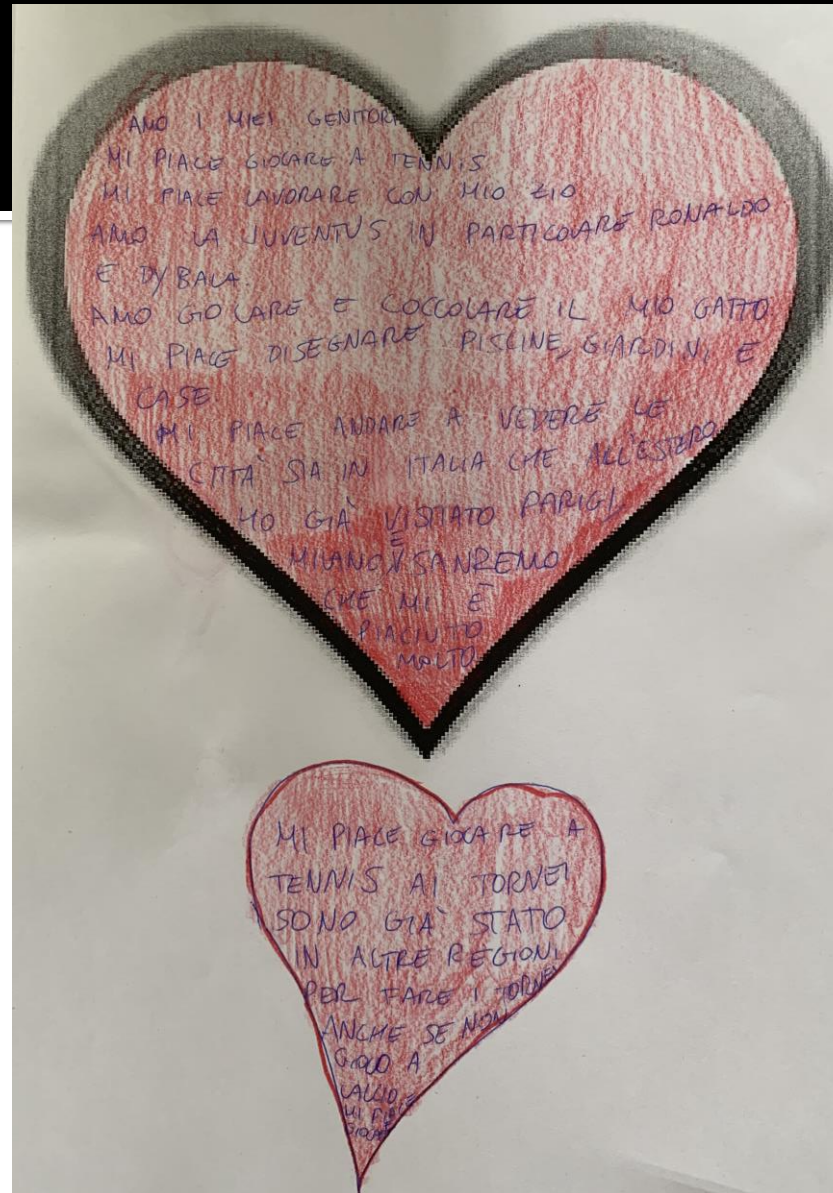 AMO I MIEI GENITORI
MI PIACE GIOCARE A TENNIS
MI PIACE LAVORARE CON MIO ZIO
AMO LA JUVENTUS IN PARTICOLARE RONALDO
E DYBALA.
AMO GIOCARE E COCCOLARE IL MIO GATTO
MI PIACE DISEGNARE PISCINE, GIARDINI E
CASE
MI PIACE ANDARE A VEDERE LE
CITTÀ SIA IN ITALIA CHE ALL'ESTERO
HO GIÀ VISITATO PARIGI,
MILANO E SANREMO
CHE MI È
PIACIUTO
MOLTO.
MI PIACE GIOCARE A
TENNIS AI TORNEI
SONO GIÀ STATO
IN ALTRE REGIONI
PER FARE I TORNEI
ANCHE SE NON
GIOCO A
CALCIO
MI PIACE